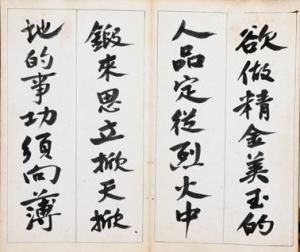 欲做精金美玉的
人品定從烈火中
鍛來思立掀天揿
地的事功須向薄